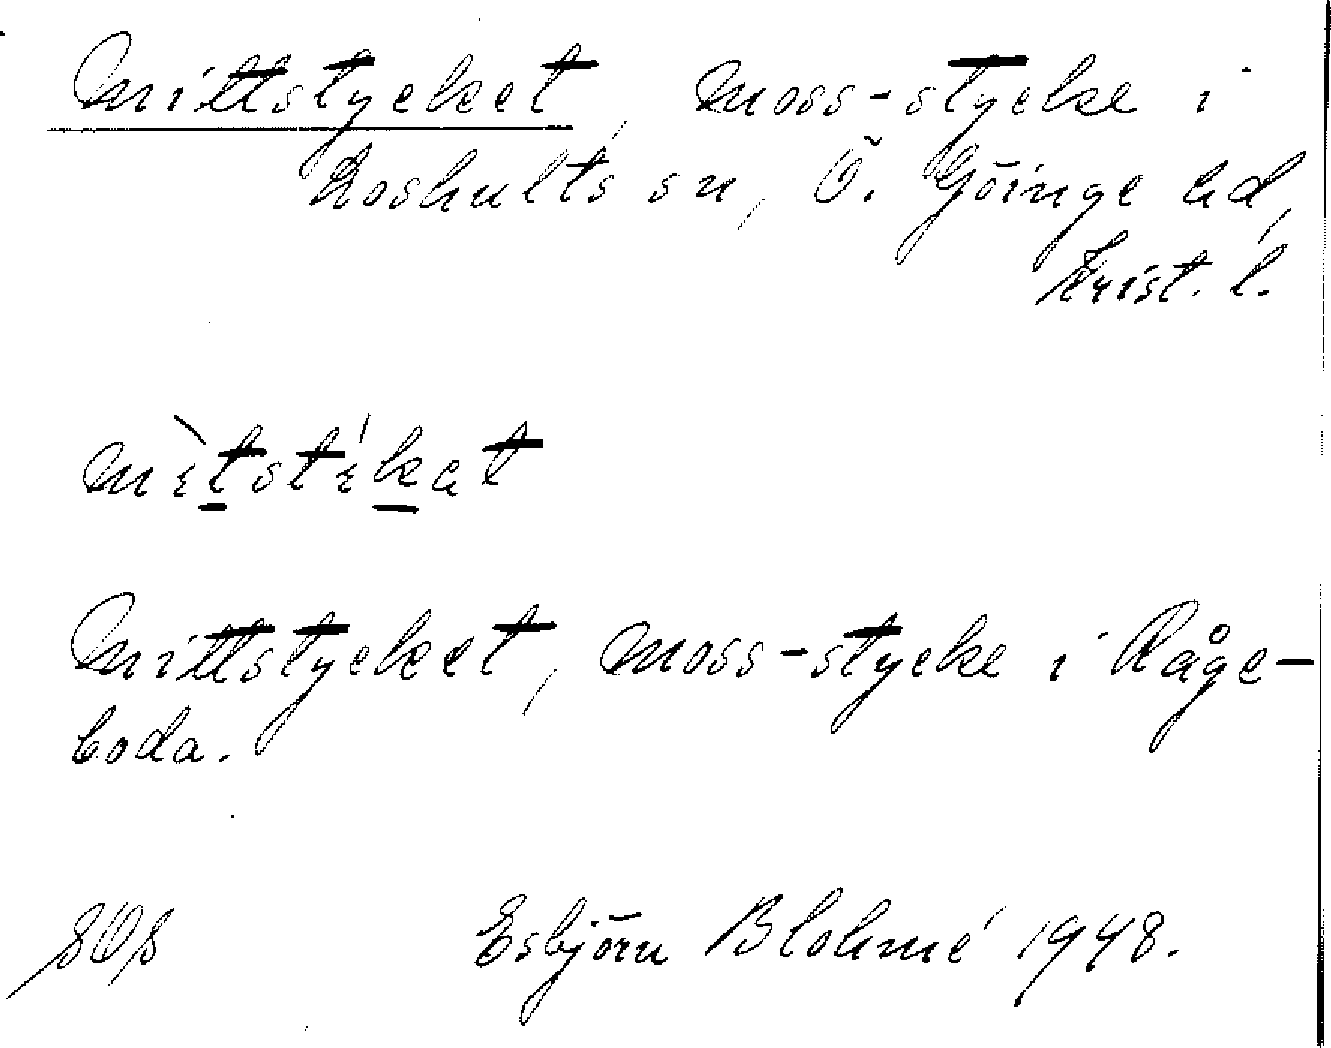 Mittstycket, moss-stycke i
Loshults sn, Ö. Göinge hd,
Krist. l.
mìtstíkat
Mittstycket, moss-stycke i Råge-
boda.
Esbjörn Blohmé 1948.